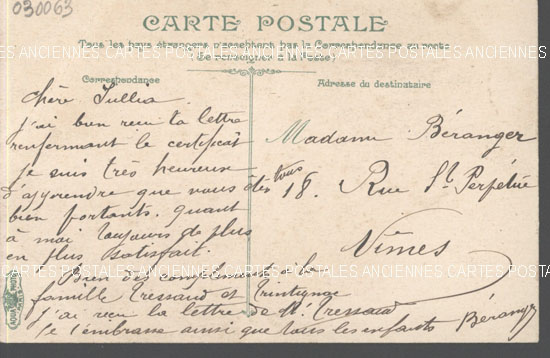 030063
CARTE POSTALE
Tous les pays étrangers n'acceptent pas la Correspondance au recto
(Se renseigner à la Poste)
CARTES POSTALES ANCIENNES CARTES POSTALES ANCIENNES
Correspondance
Chère Jullia
j'ai bien reçu ta lettre
renfermant le certificat
je suis très heureux
d'apprendre que vous êtes tous
bien portants. quant
à moi toujours de plus
en plus satisfait
Bien des compliments à la
famille Tressaud et Trintignac
j'ai reçu la lettre de Mr Tressaud
je t'embrasse ainsi que tous les enfants Béranger
Adresse du destinataire
Madame Béranger
18. Rue St Perpétue
Nîmes
CARTES POSTALES ANCIENNES CARTES POSTALES ANCIENNES